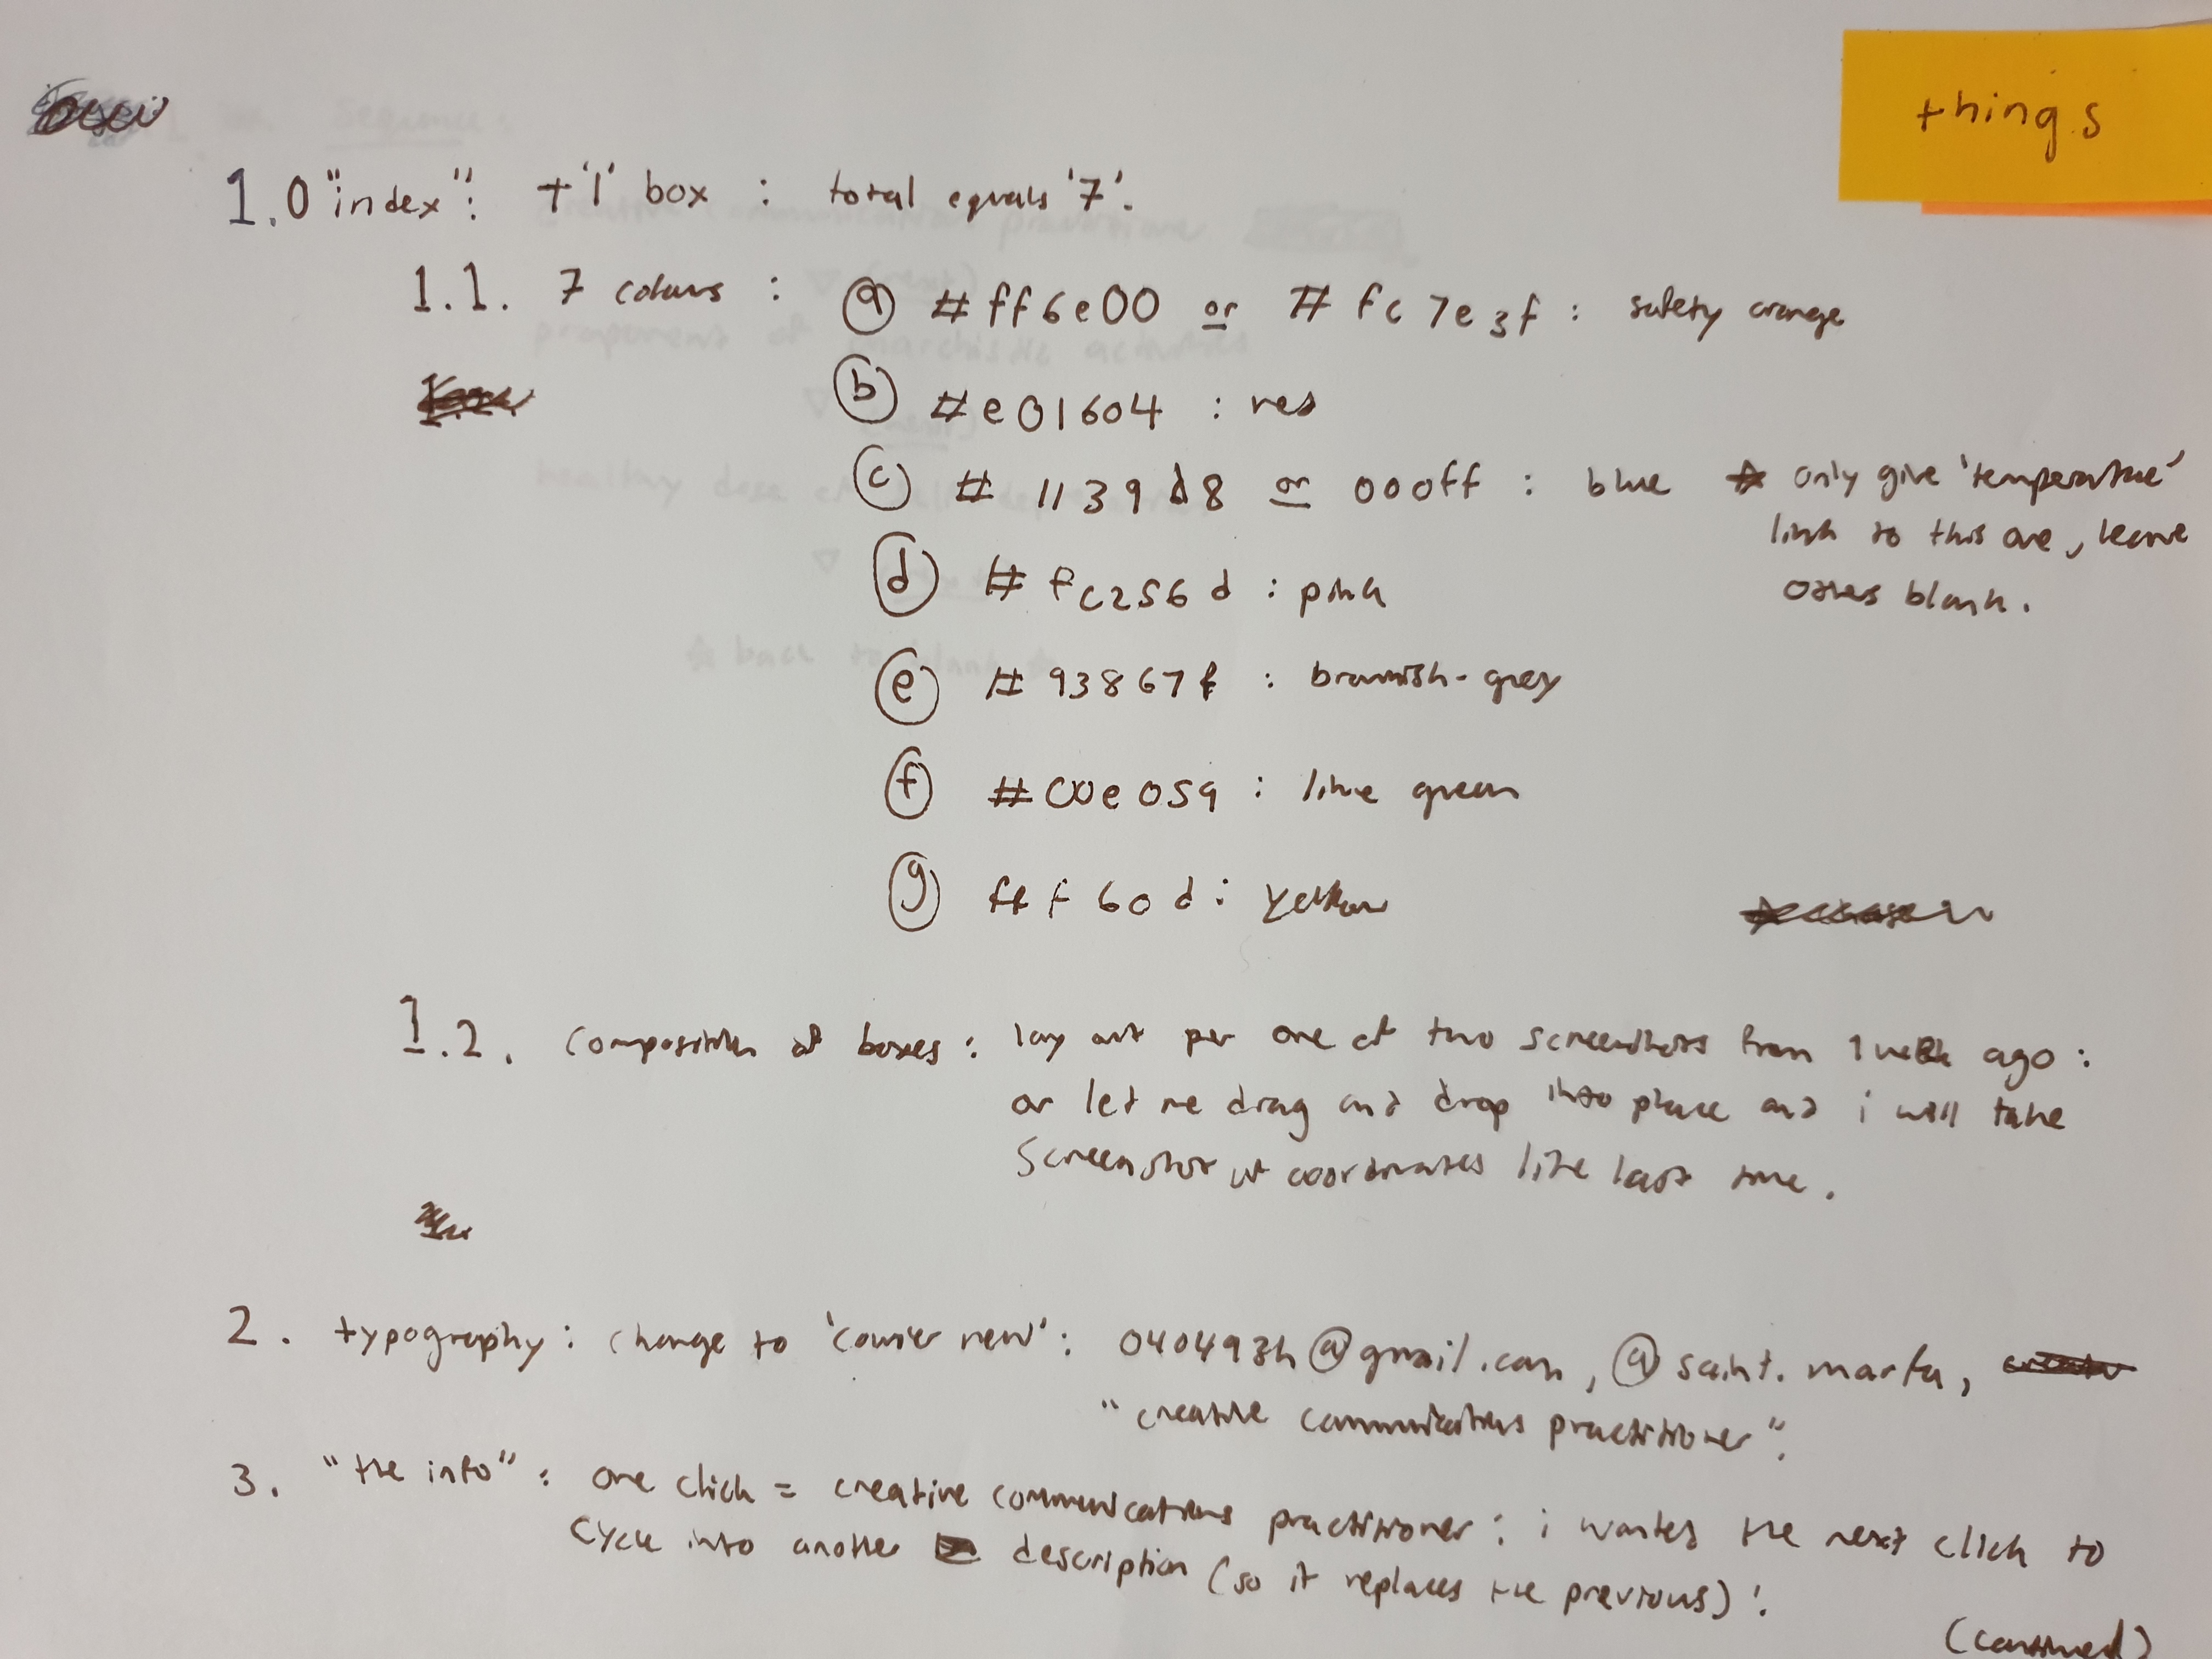 things
1.0 "index": +'1' box : total equals '7'.
1.1. 7 colours : (a) #ff6e00 or #fc7e3f : safety orange
(b) #e01604 : red
(c) #1139d8 or 000ff : blue ☆ only give 'temperature'
link to this one, leave
others blank.
(d) #fc256d : pink
(e) #93867f : brownish-grey
(f) #00e059 : lime green
(g) fff60d : yellow
1.2. composition of boxes : lay out per one of two screenshots from 1 week ago :
or let me drag and drop into place and i will take
screenshot w coordinates like last time.
2. typography : change to 'courier new' : 040493h@gmail.com, @saint.marta,
"creative communications practitioner".
3. "the info" : one click = creative communications practitioner : i wanted the next click to
cycle into another description (so it replaces the previous) :
(continued)